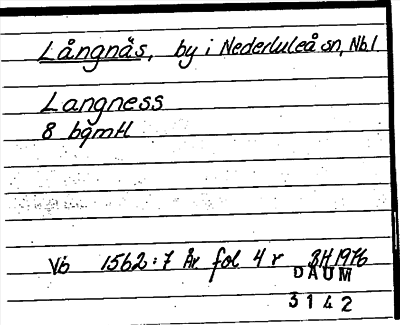 Långnäs, by i Nederluleå sn, Nbl
Langness
8 bgmtl
Vb 1562:7 År fol 4 r BH 1976
DAUM
3142